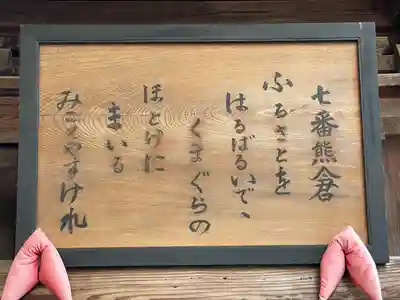 七番熊倉
ふるさとを
はるばるいでゝ
くまぐらの
ほとけに
まいる
やすけれ